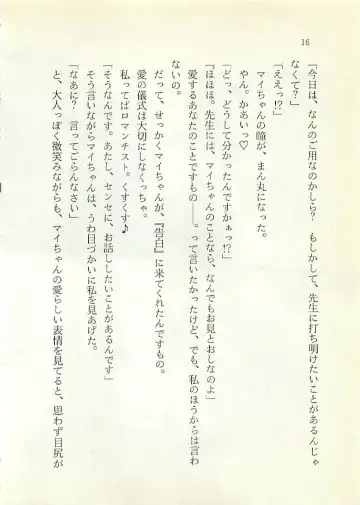 16
「今日は、なんのご用なのかしら？　もしかして、先生に打ち明けたいことがあるんじゃ
なくて？」
「ええっ!?」
マイちゃんの瞳が、まん丸になった。
やん。かあいっ♡
「どっ、どうして分かったんですかぁっ!?」
「ほほほ。先生には、マイちゃんのことなら、なんでもお見とおしなのよ」
愛するあなたのことですもの――。って言いたかったけど、でも、私のほうからは言わ
ないの。
だって、せっかくマイちゃんが、『告白』に来てくれたんですもの。
愛の儀式は大切にしなくっちゃ。
私ってばロマンチスト。くすくす♪
「そうなんです。あたし、センセに、お話ししたいことがあるんです」
そう言いながらマイちゃんは、うわ目づかいに私を見あげた。
「なあに？　言ってごらんなさい」
と、大人っぽく微笑みながらも、マイちゃんの愛らしい表情を見てると、思わず目尻が